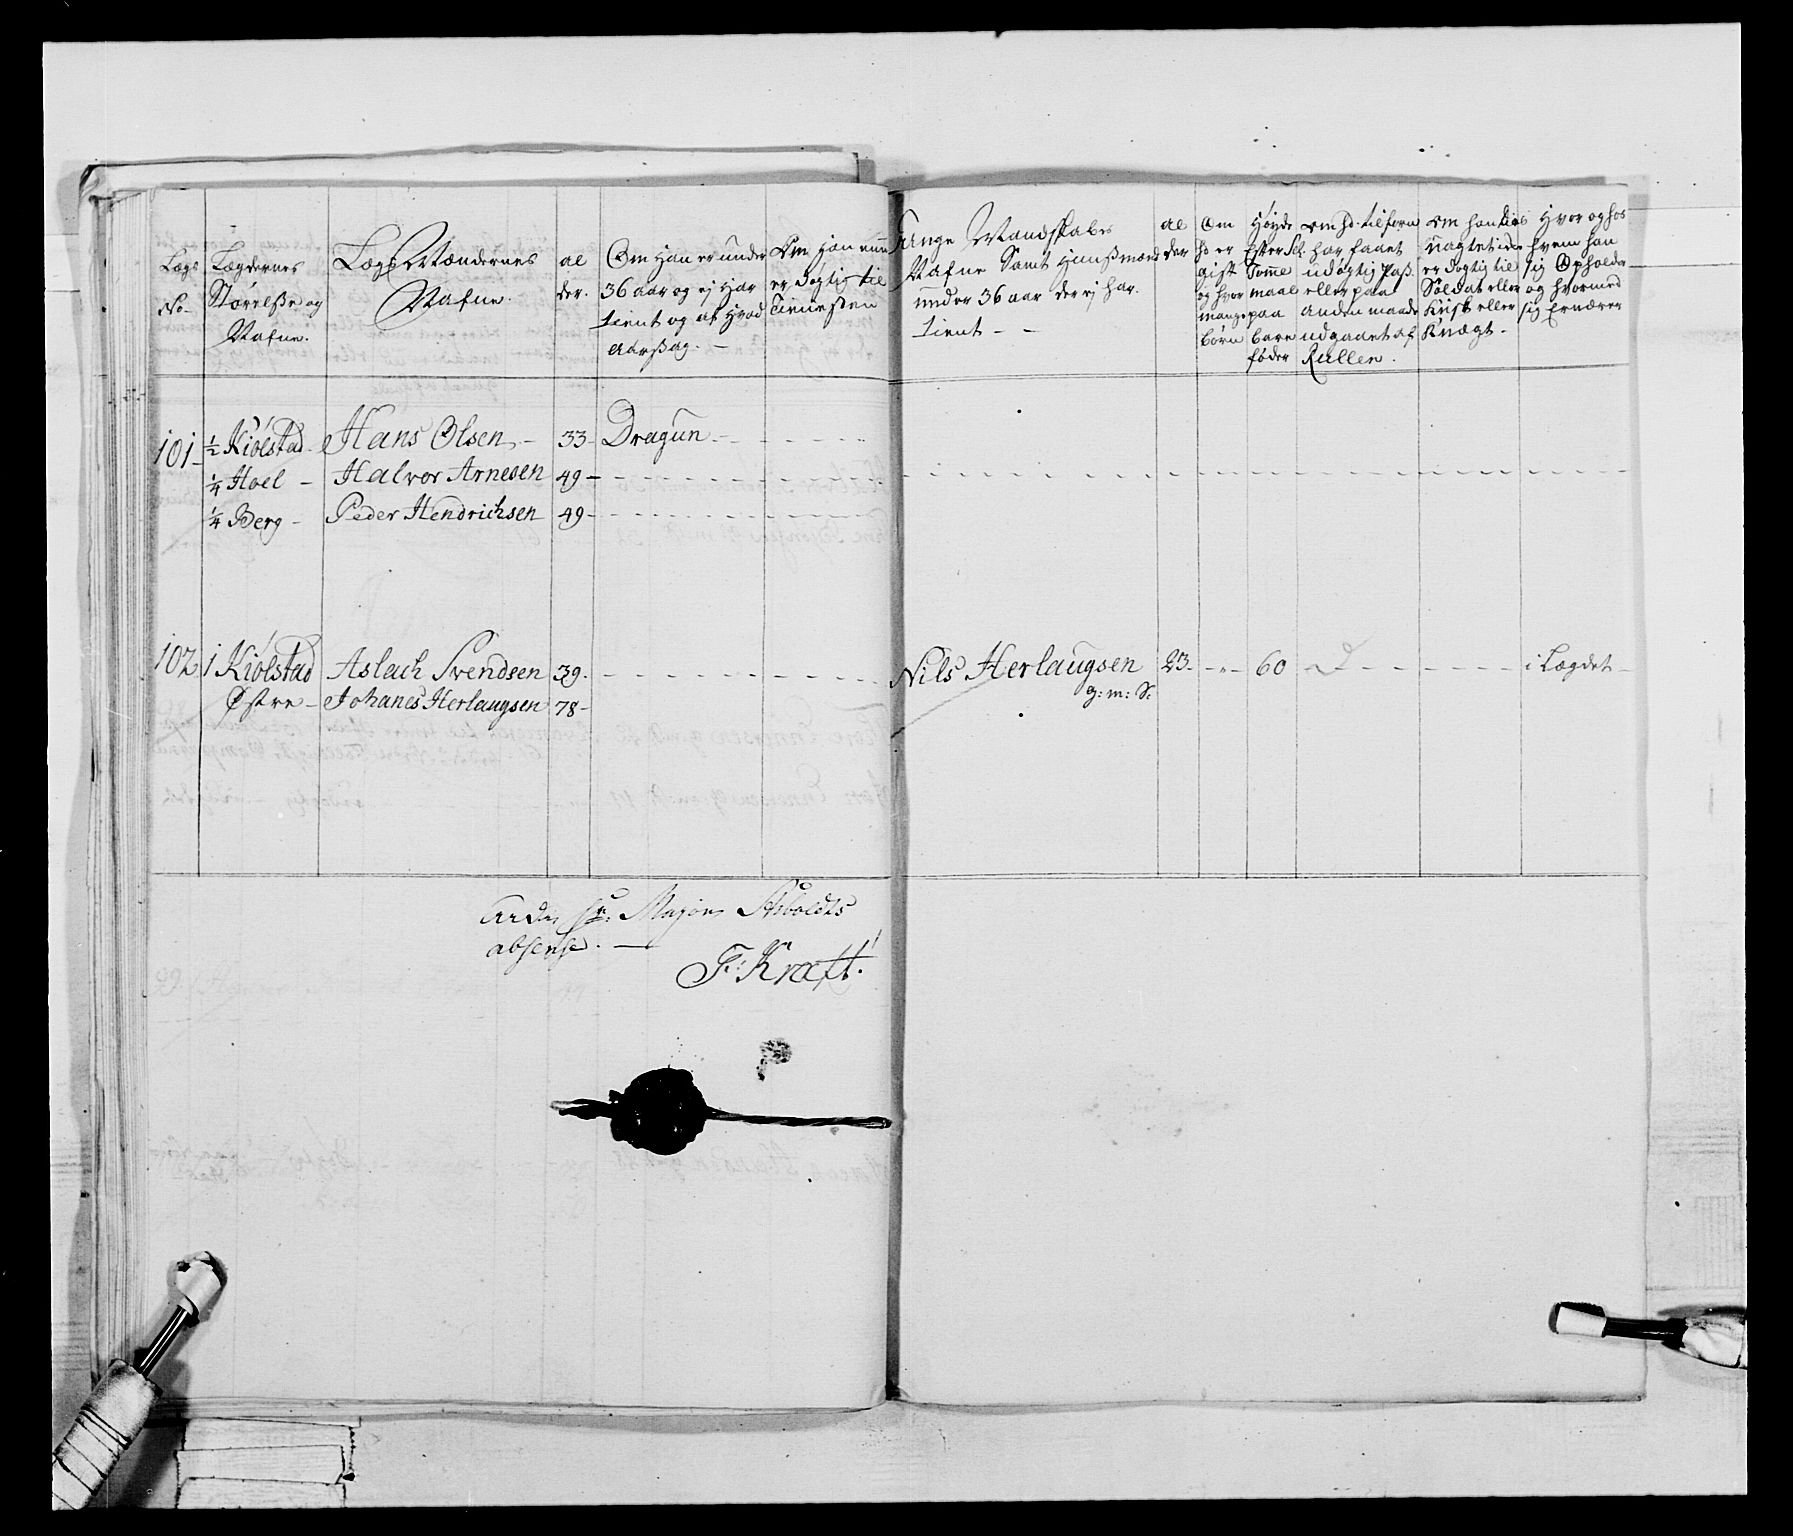 Lægs
No
Lægdernes
Størrelsse og
Nafne.
Lægs Mændernes
Nafne.
al
der.
Om han er under
36 aar og ej har
tient og af hvad
aarsag.
Om han
er dygtig til
Tienesten
Unge Mandskabs
Nafne Samt Huusmænd
under 36 aar der ej har
tient
al
der
Om
hd er
gift
og hvor
mange
børn
Høyde
Efter Sel:
Tomme
maal
paa
bare
føder
om hd: tilforn
har faaet
udygtig Pass
eller paa
anden maade
udgaaet af
Rullen.
om han
er dygtig til
Soldat eller
Kusk eller
Knægt
Hvor og hos
hvem han
sig Opholder
og hvormed
sig Ernærer
101 ½ Kiølstad Hans Olsen 33 Dragun
¼ Hoel Halvor Arnesen 49
¼ Berg Peder Hendrichsen 49
102 1 Kiølstad Aslach Svendsen 39. Nils Herlaugsen 23 60 D i Lægdet
Østre Johanes Herlaugsen 78 g: m: S:
Major Siboldts
absense.
F: Kraft.